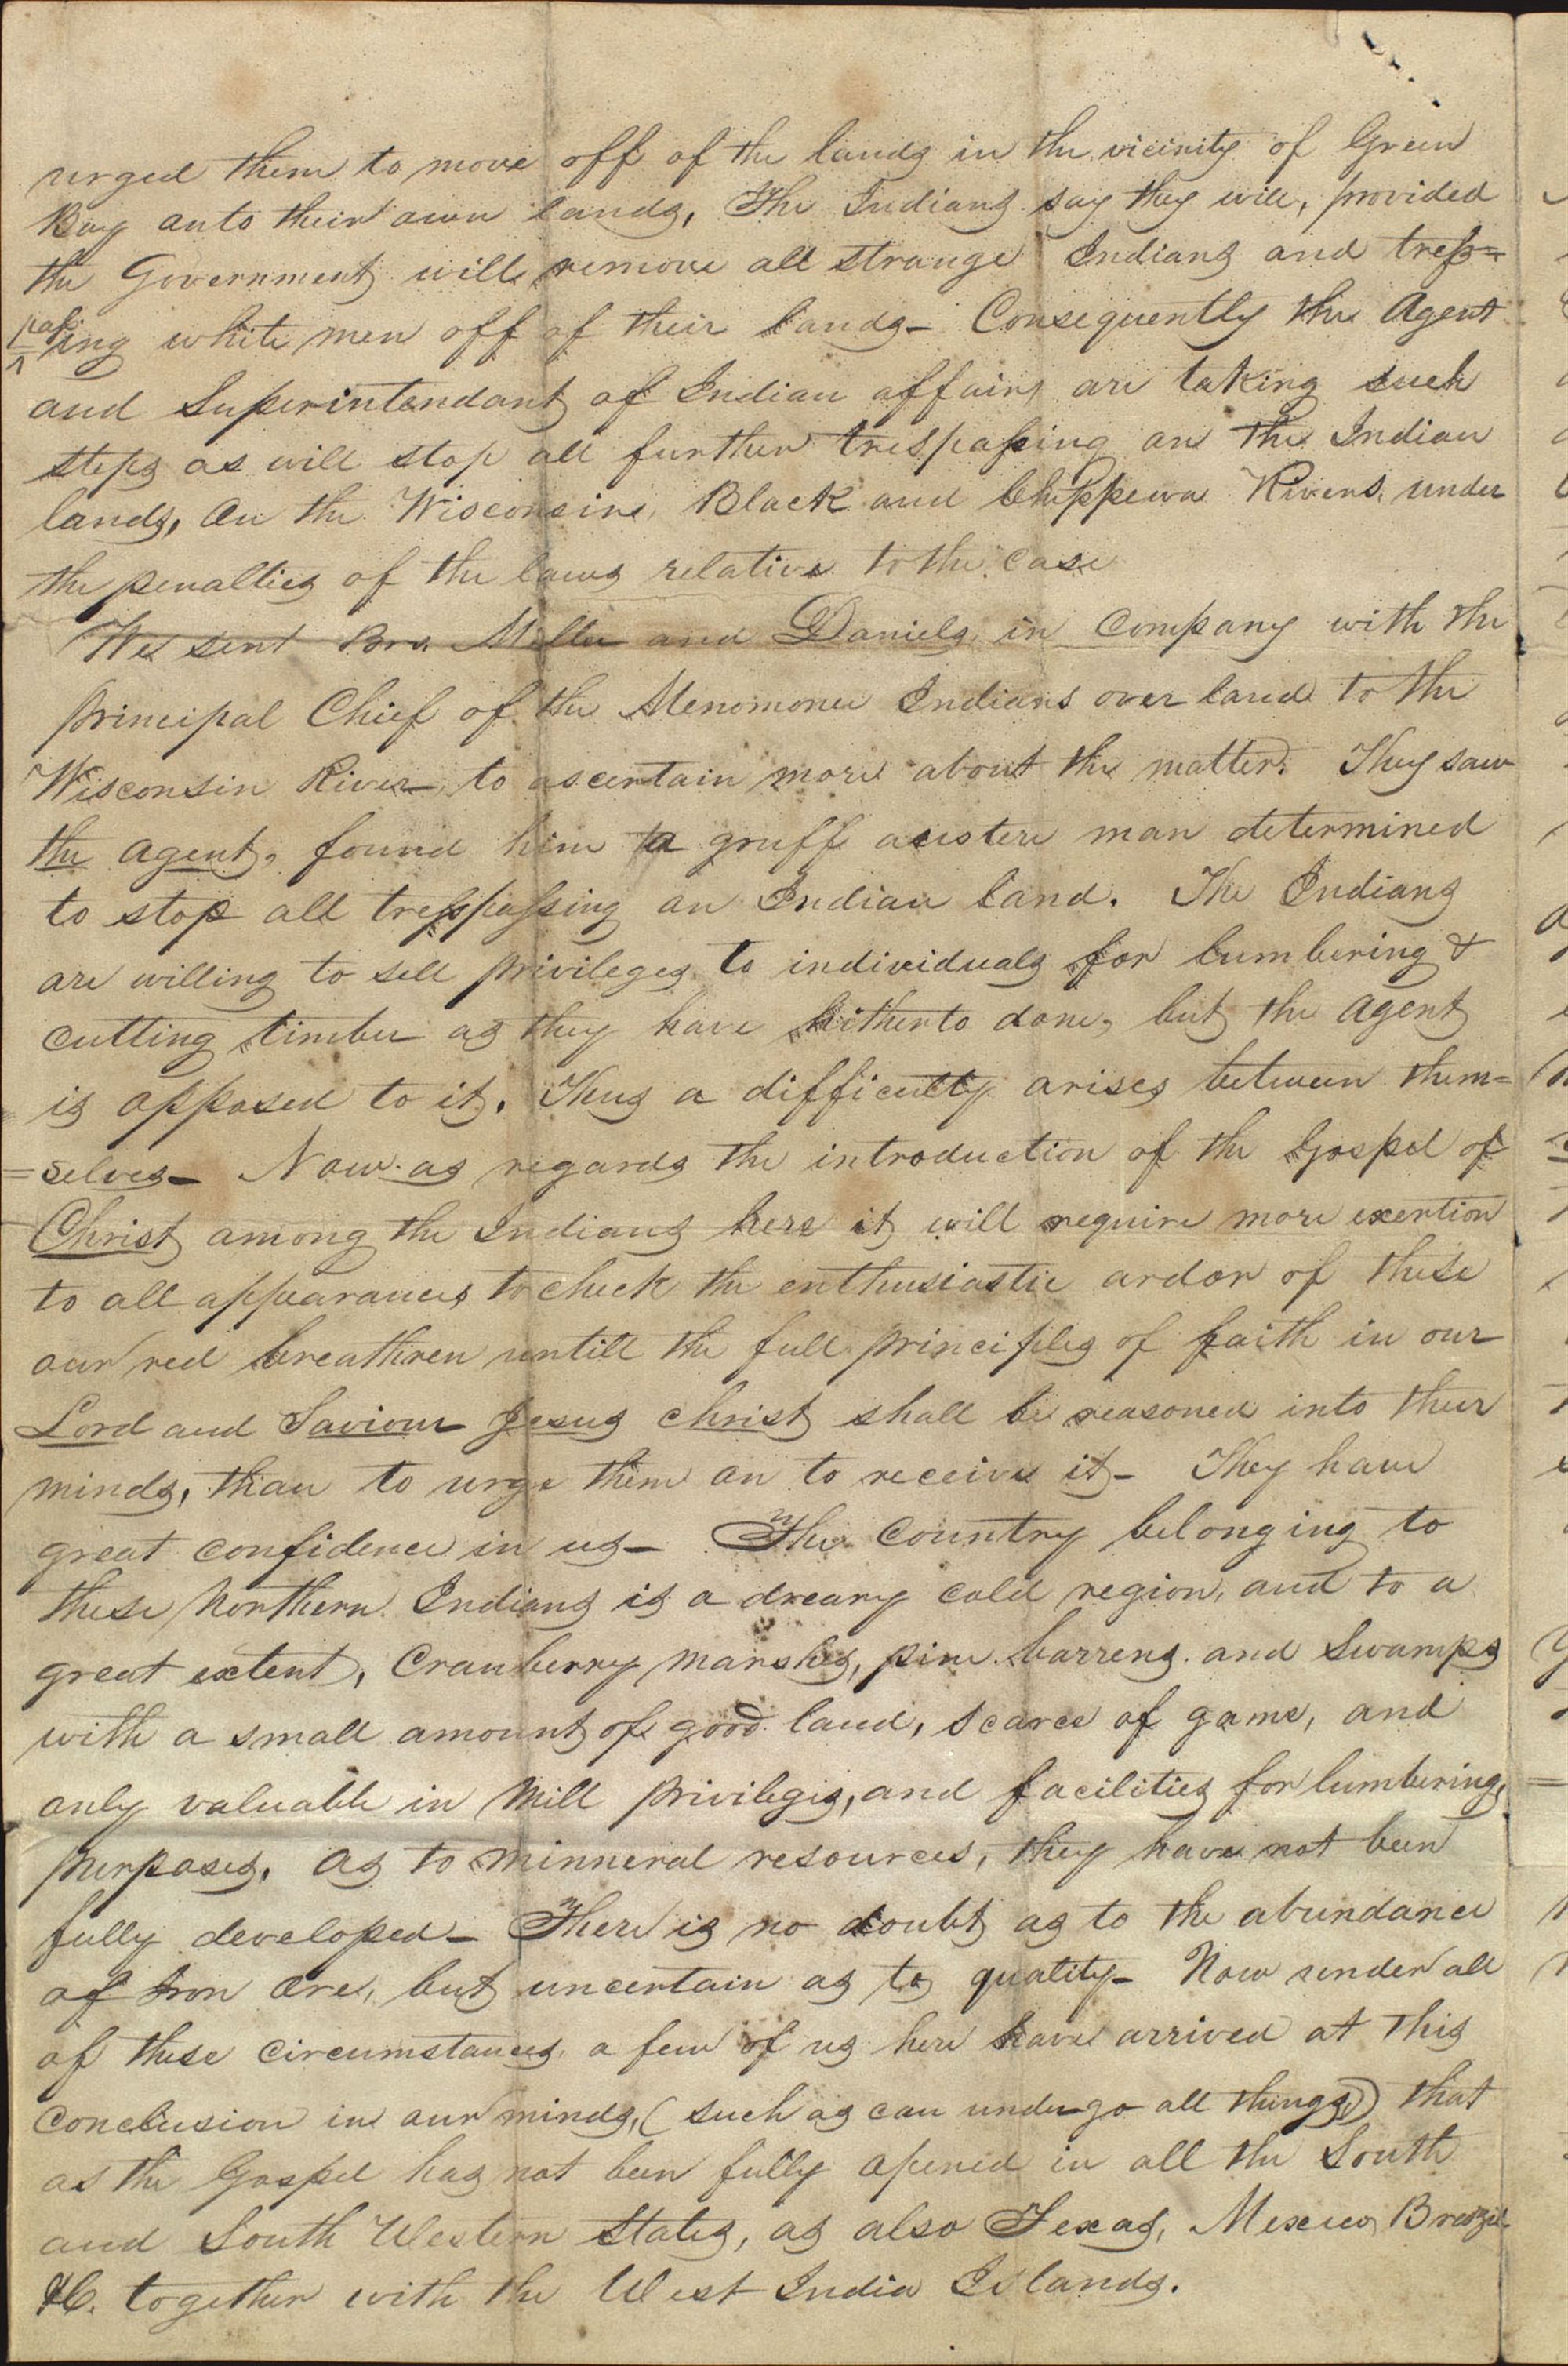 urged them to move off of the lands in the vicinity of Green
Bay onto their own lands, The Indians say they will, provided
the Government will remove all strange Indians and tress=
pasing white men off of their lands– Consequently the Agent
and Superintendant of Indian affairs are taking such
steps as will stop all further trespassing on the Indian
lands, on the Wisconsine, Black and Chippewa Rivers, under
the penalties of the laws relative to the case
We sent Bro. Miller and Daniels in company with the
principal Chief of the Menomonee Indians over land to the
Wisconsin River to ascertain more about the matter. They saw
the agent, found him a gruff austere man determined
to stop all tresspassing on Indian land. The Indians
are willing to sell privileges to individuals for lumbering &
cutting timber as they have hitherto done, but the agent
is opposed to it. Thus a difficulty arises between them=
=selves– Now as regards the introduction of the Gospel of
Christ among the Indians here it will require more exertion
to all appearances to check the enthusiastic ardor of these
our red breathren untill the full principles of faith in our
Lord and Saviour Jesus Christ shall be reasoned into their
minds, than to urge them on to receive it– They have
great confidence in us– The Country belonging to
these Northern Indians is a dreary cold region, and to a
great extent, Cranberry marshes, pine barrens and Swamps
with a small amount of good land, scarce of game, and
only valuable in Mill privileges, and facilities for lumbering
purposes. As to minneral resources, they have not been
fully developed– There is no doubt as to the abundance
of Iron Ore, but uncertain as to quality– Now under all
of these circumstances a few of us here have arrived at this
conclusion in our minds, (such as can undergo all things) that
as the Gospel has not been fully opened in all the South
and South Western States, as also Texas, Mexico, Brazil
&c. together with the West India Islands.